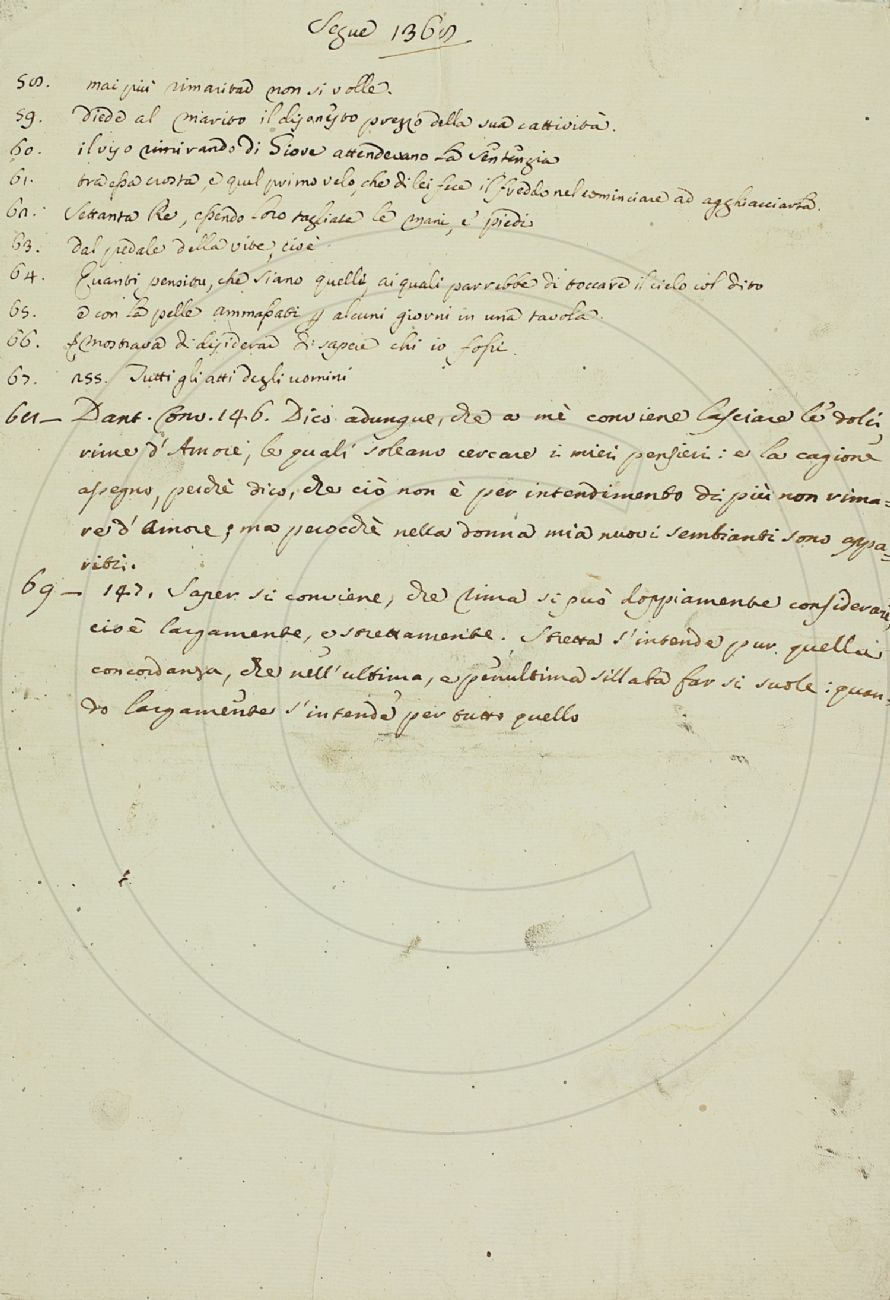 Segue 1368
58. mai più rimaritar non si volle.
59. Diede al marito il disonesto prezzo della sua cattività.
60. il viso rimirando di Giove attendevano la sentenzia
61. tra essa crosta, e quel primo velo, che di lei fece il freddo nel cominciare ad agghiacciarla.
62. Settanta Re, essendo loro tagliate le mani, e piedi
63. Dal pedale della vite, cioè
64. Quanti pensitu, che siano quelli, ai quali parrebbe di toccare il cielo col dito
65. e con la pelle ammassati p alcuni giorni in una tavola.
66. E mostrava di disiderar di sapere chi io fossi.
67. 255. Tutti gli atti degli uomini
68 — Dant. Conv. 146. Dico adunque, che a me conviene lasciare le dolci
rime d'Amore, le quali soleano cercare i miei pensieri: e la cagione
assegno, perchè dico, che ciò non è per intendimento di più non rima=
re d'Amore; ma perocchè nella donna mia nuovi sembianti sono appa=
riti.
69 — 147. Saper si conviene, che rima si può doppiamente considerare,
cioè largamente, e strettamente. Stretta s'intende pur quella
concordanza, che nell'ultima, e penultima sillaba far si suole: quan=
do largamente s'intende per tutto quello